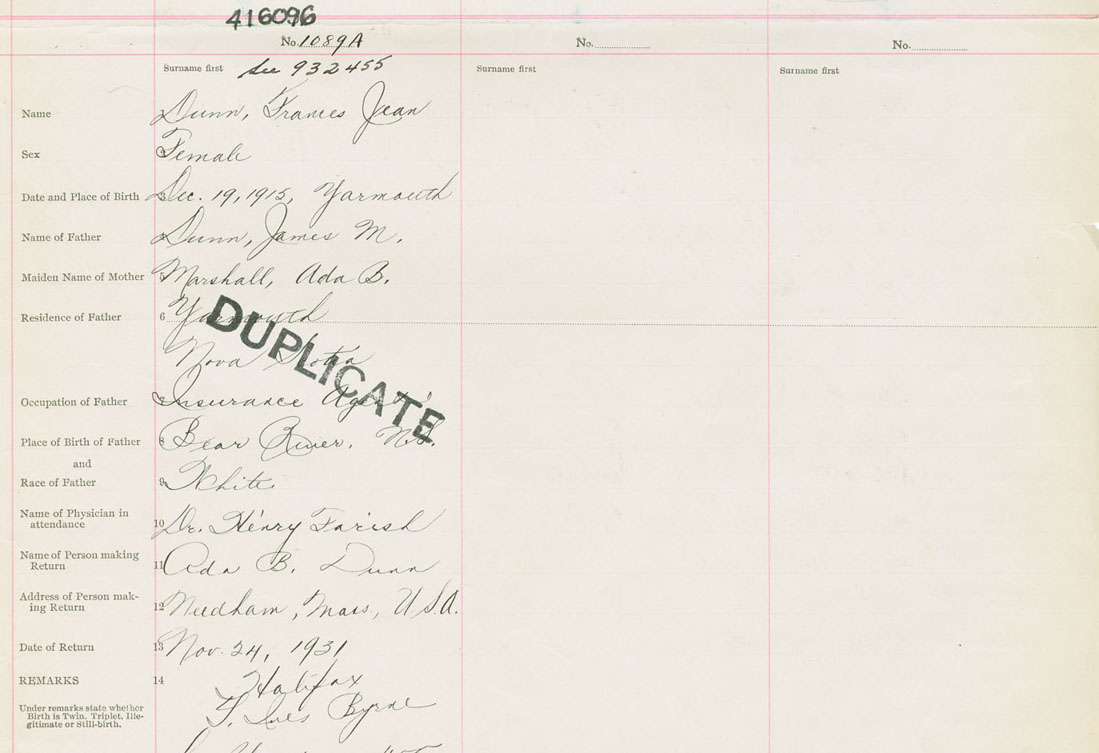 416096
No. 1089A No. No.
Surname first See 932455 Surname first Surname first
Name Dunn, Frances Jean
Sex Female
Date and Place of Birth 3 Dec. 19, 1915, Yarmouth
Name of Father Dunn, James M.
Maiden Name of Mother 5 Marshall, Ada B.
Residence of Father 6 Yarmouth
Nova Scotia
DUPLICATE
Occupation of Father Insurance Agent
Place of Birth of Father 8 Bear River, N.S.
and
Race of Father 9 White
Name of Physician in
attendance 10 Dr. Henry Farish
Name of Person making
Return 11 Ada B. Dunn
Address of Person mak-
ing Return 12 Needham, Mass., U.S.A.
Date of Return 13 Nov. 24, 1931
REMARKS 14 Halifax
Under remarks state whether
Birth is Twin, Triplet, Ille-
gitimate or Still-birth.
Byrne